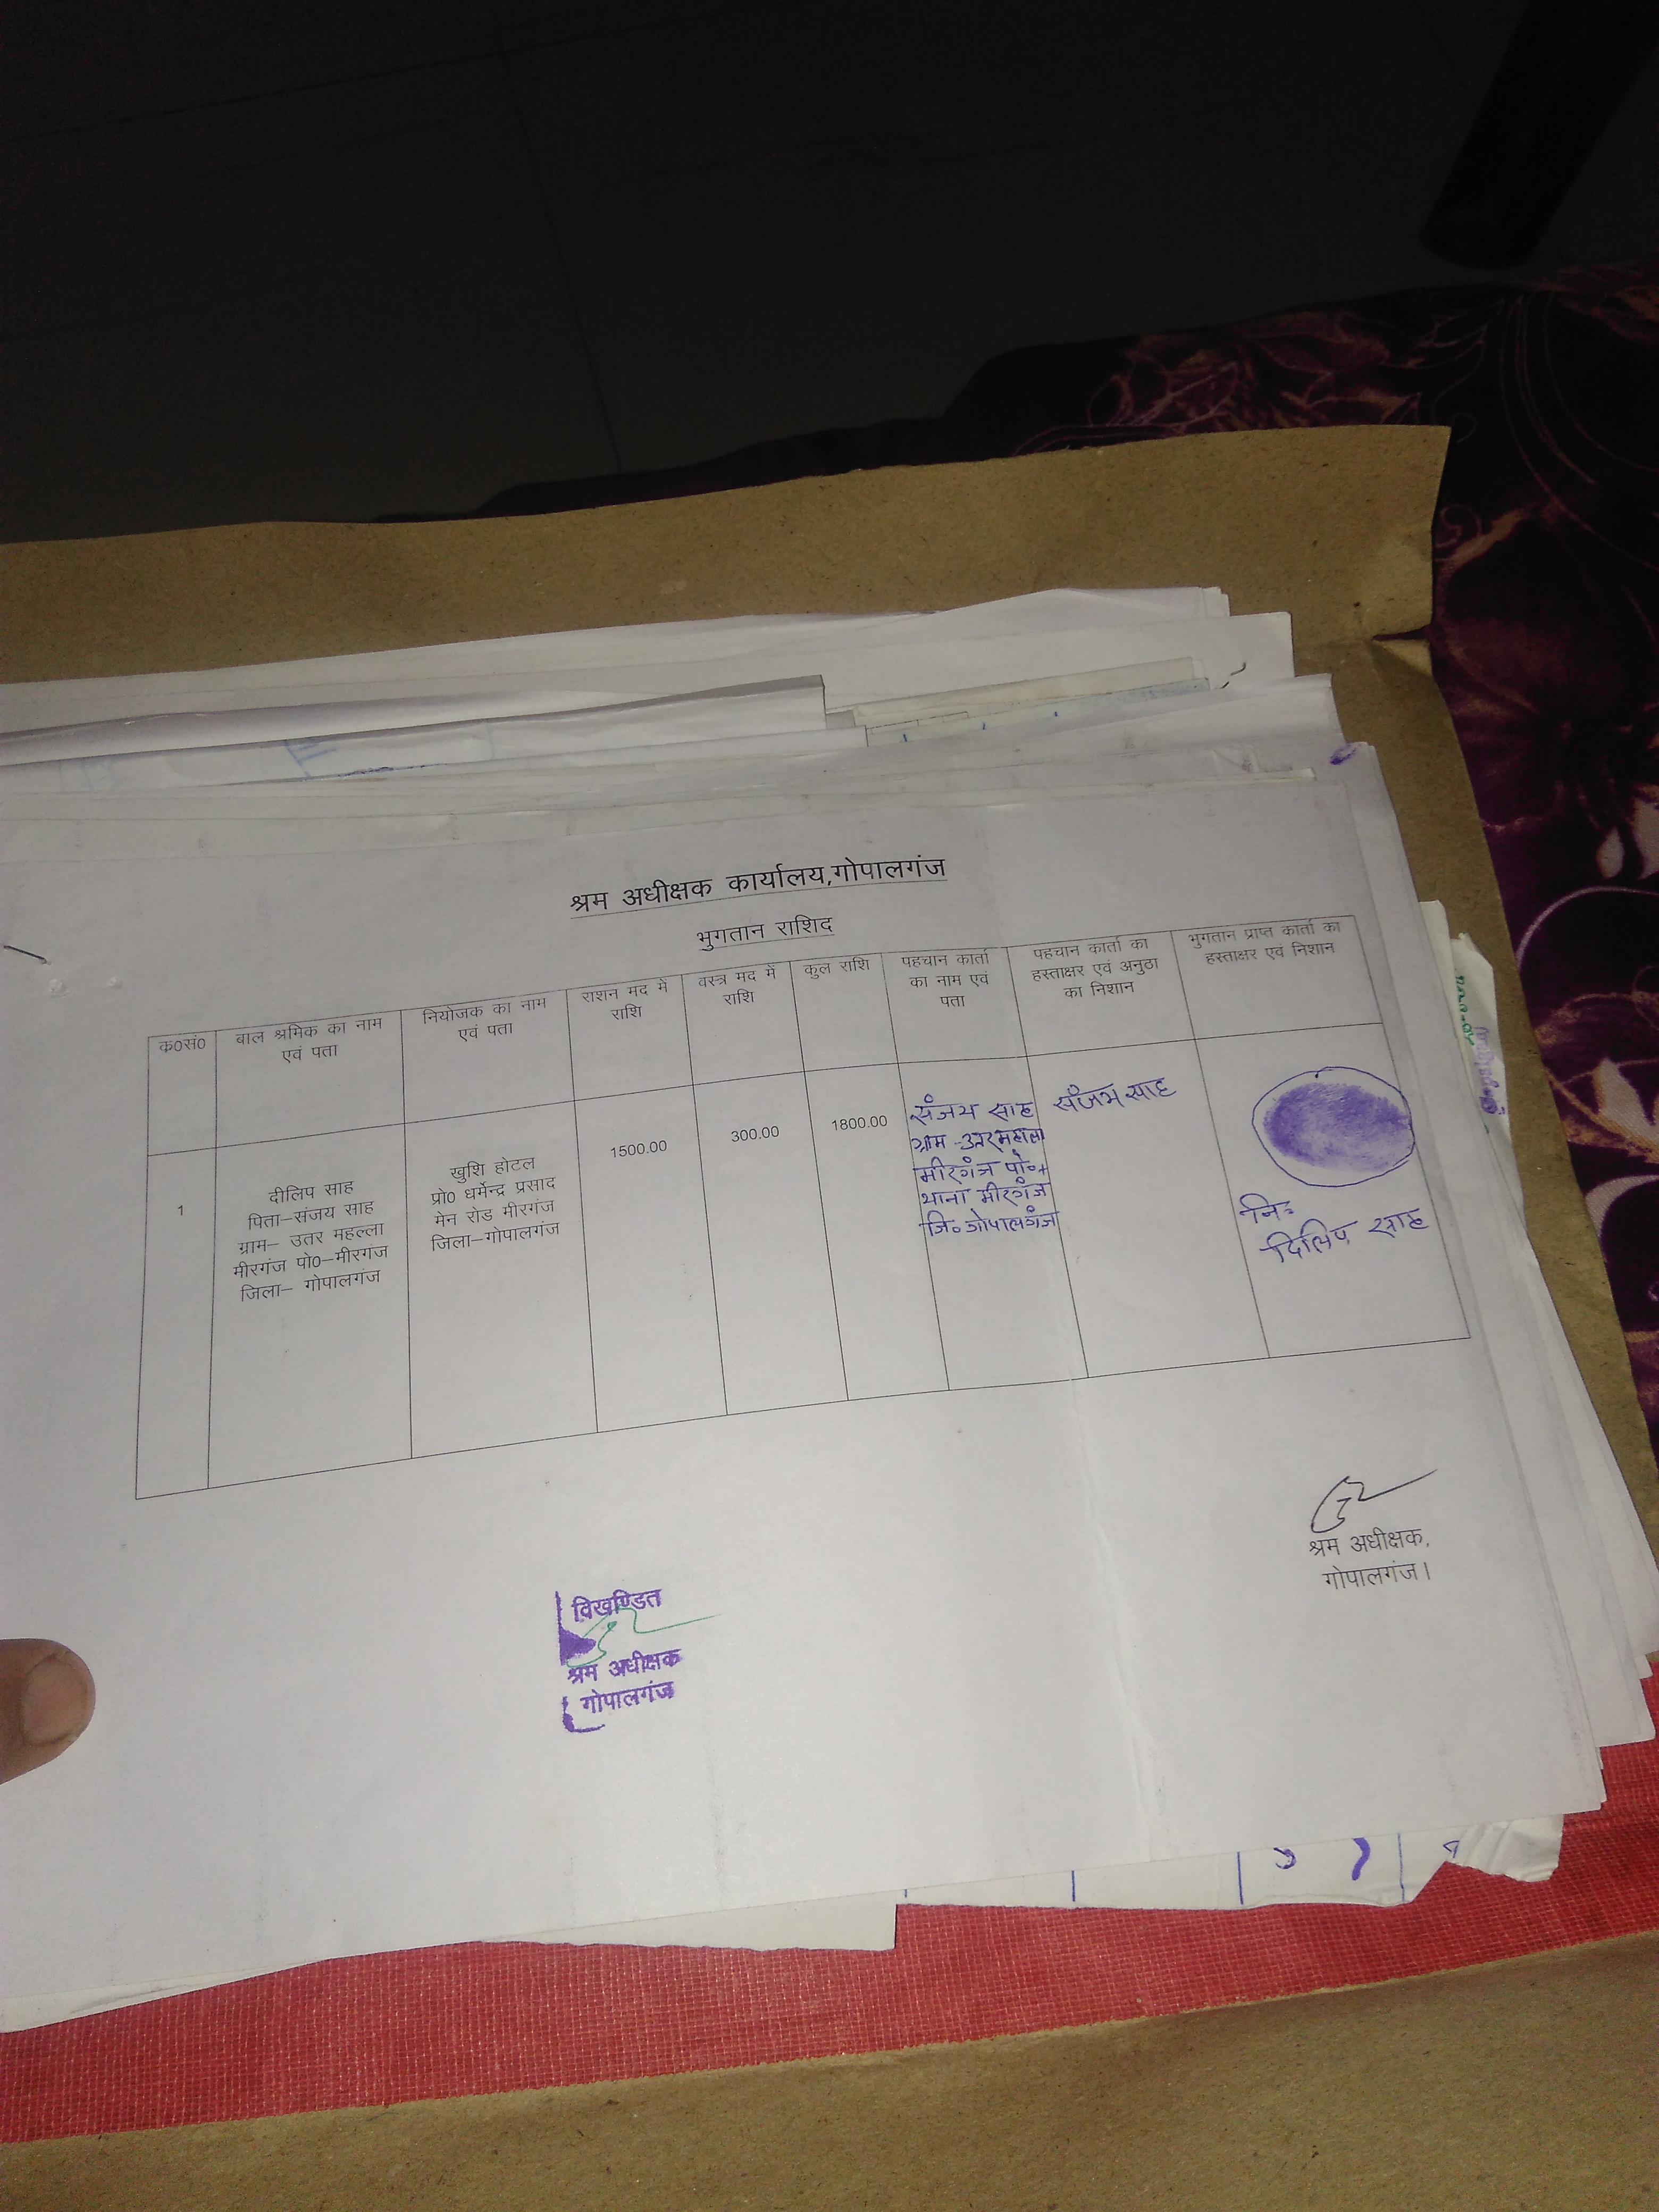 श्रम अधीक्षक कार्यालय,गोपालगंज
भुगतान राशिद
क0सं0
बाल श्रमिक का नाम
एवं पता
नियोजक का नाम
एवं पता
राशन मद में
राशि
वस्त्र मद में
राशि
कुल राशि
पहचान कार्ता
का नाम एवं
पता
पहचान कार्ता का
हस्ताक्षर एवं अनुठा
का निशान
भुगतान प्राप्त कार्ता का
हस्ताक्षर एवं निशान
1
दीलिप साह
पिता–संजय साह
ग्राम– उतर महल्ला
मीरगंज पो0–मीरगंज
जिला– गोपालगंज
खुशि होटल
प्रो0 धर्मेन्द्र प्रसाद
मेन रोड मीरगंज
जिला–गोपालगंज
1500.00
300.00
1800.00
संजय साह
ग्राम -
मीरगंज पो०+
थाना मीरगंज
जि० गोपालगंज
संजय साह
नि॰
दिलिप साह
श्रम अधीक्षक,
गोपालगंज।
विखण्डित
श्रम अधीक्षक
गोपालगंज